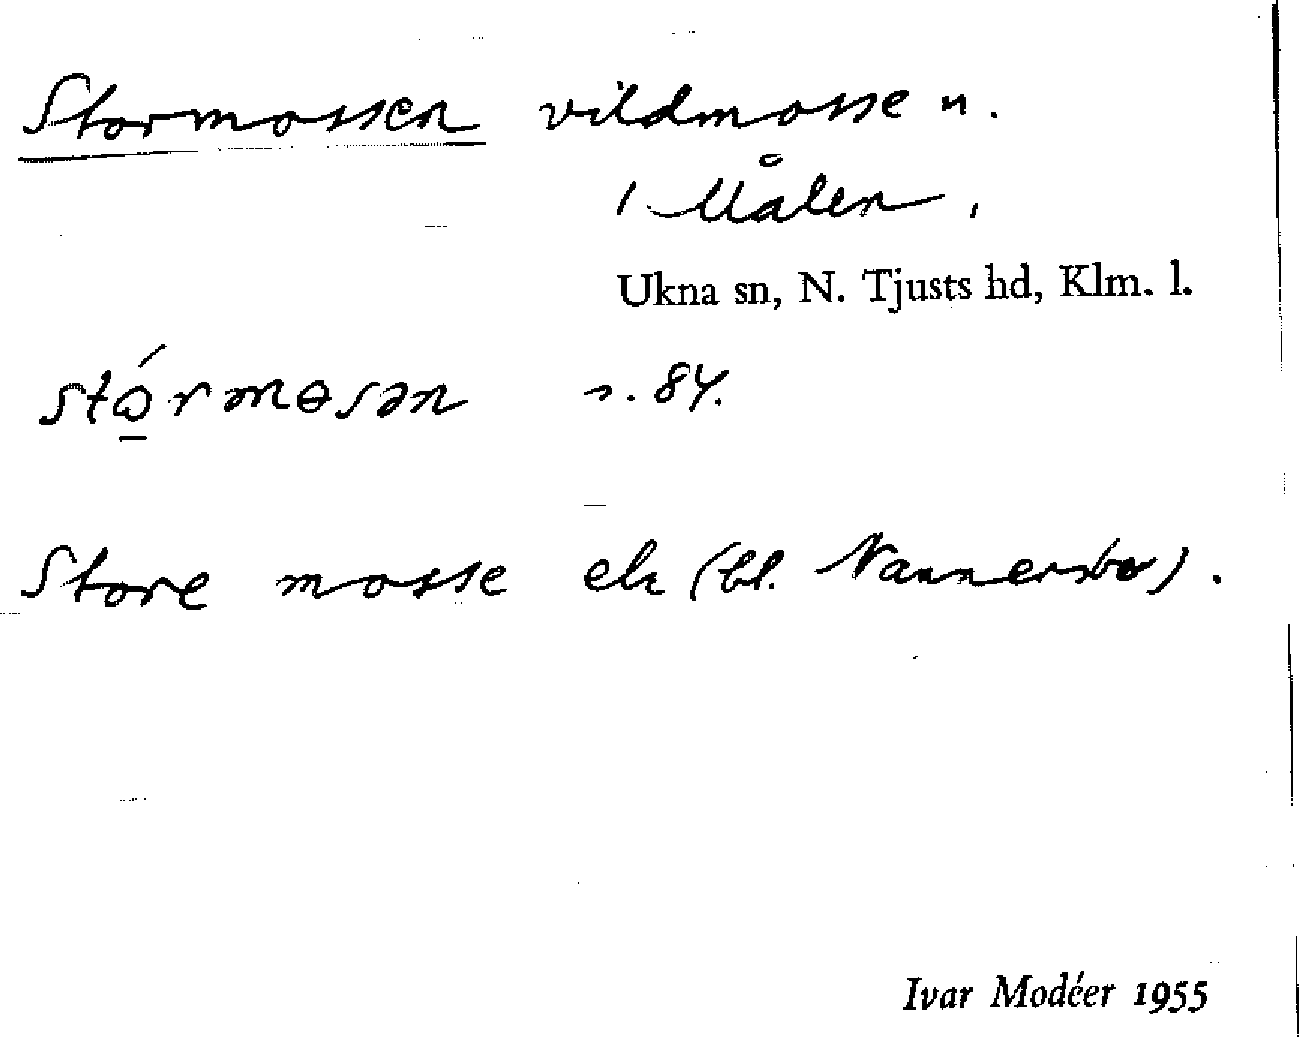 Stormossen vildmosse n.
i Målen,
Ukna sn, N. Tjusts hd, Klm. l.
stǫ́rmɵsən s. 84.
Store mosse ek (bl. Nannersbo).
Ivar Modéer 1955